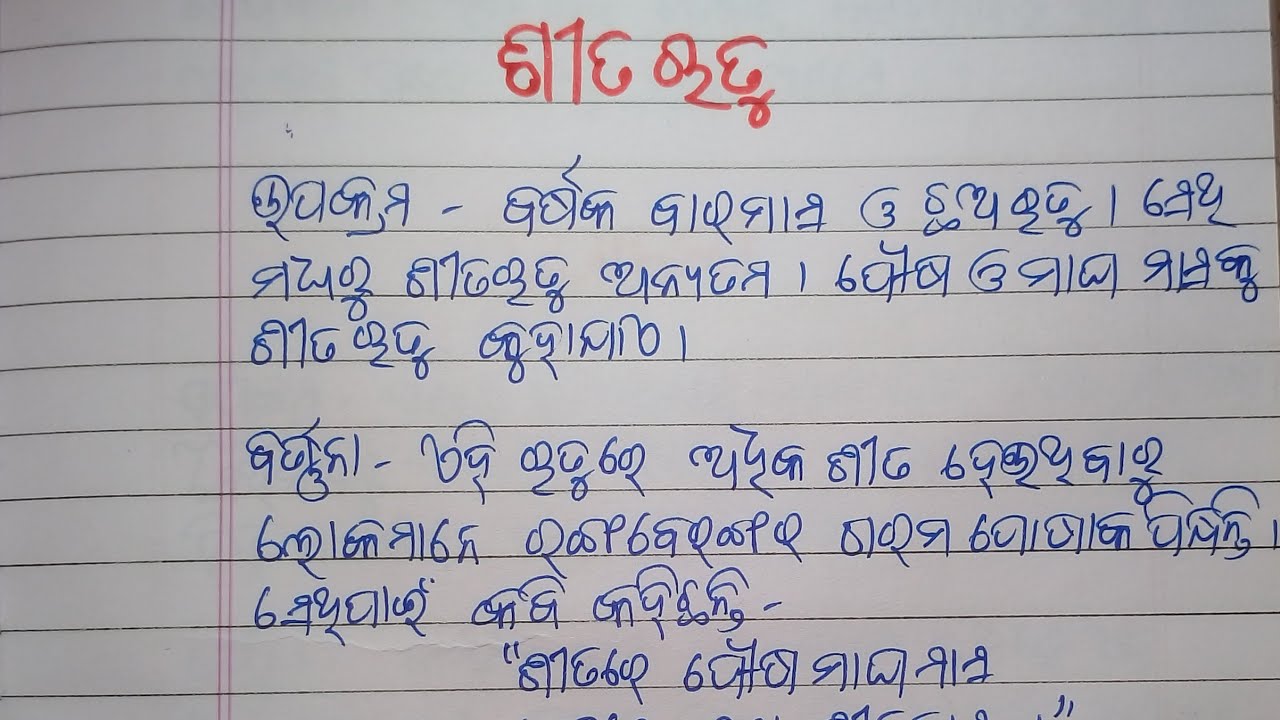 ଶୀତ ଋତୁ
ଉପକ୍ରମ - ବର୍ଷକ ବାରମାସ ଓ ଛଅ ଋତୁ । ସେଥି
ମଧ୍ୟରୁ ଶୀତଋତୁ ଅନ୍ୟତମ । ପୌଷ ଓ ମାଘ ମାସକୁ
ଶୀତ ଋତୁ କୁହାଯାଏ ।
ବର୍ଣ୍ଣନା - ଏହି ଋତୁରେ ଅଧିକ ଶୀତ ହେଉଥିବାରୁ
ଲୋକମାନେ ରଙ୍ଗବେରଙ୍ଗର ଗରମ ପୋଷାକ ପିନ୍ଧନ୍ତି ।
ସେଥିପାଇଁ କବି କହିଛନ୍ତି -
"ଶୀତରେ ପୌଷ ମାଘ ମାସ